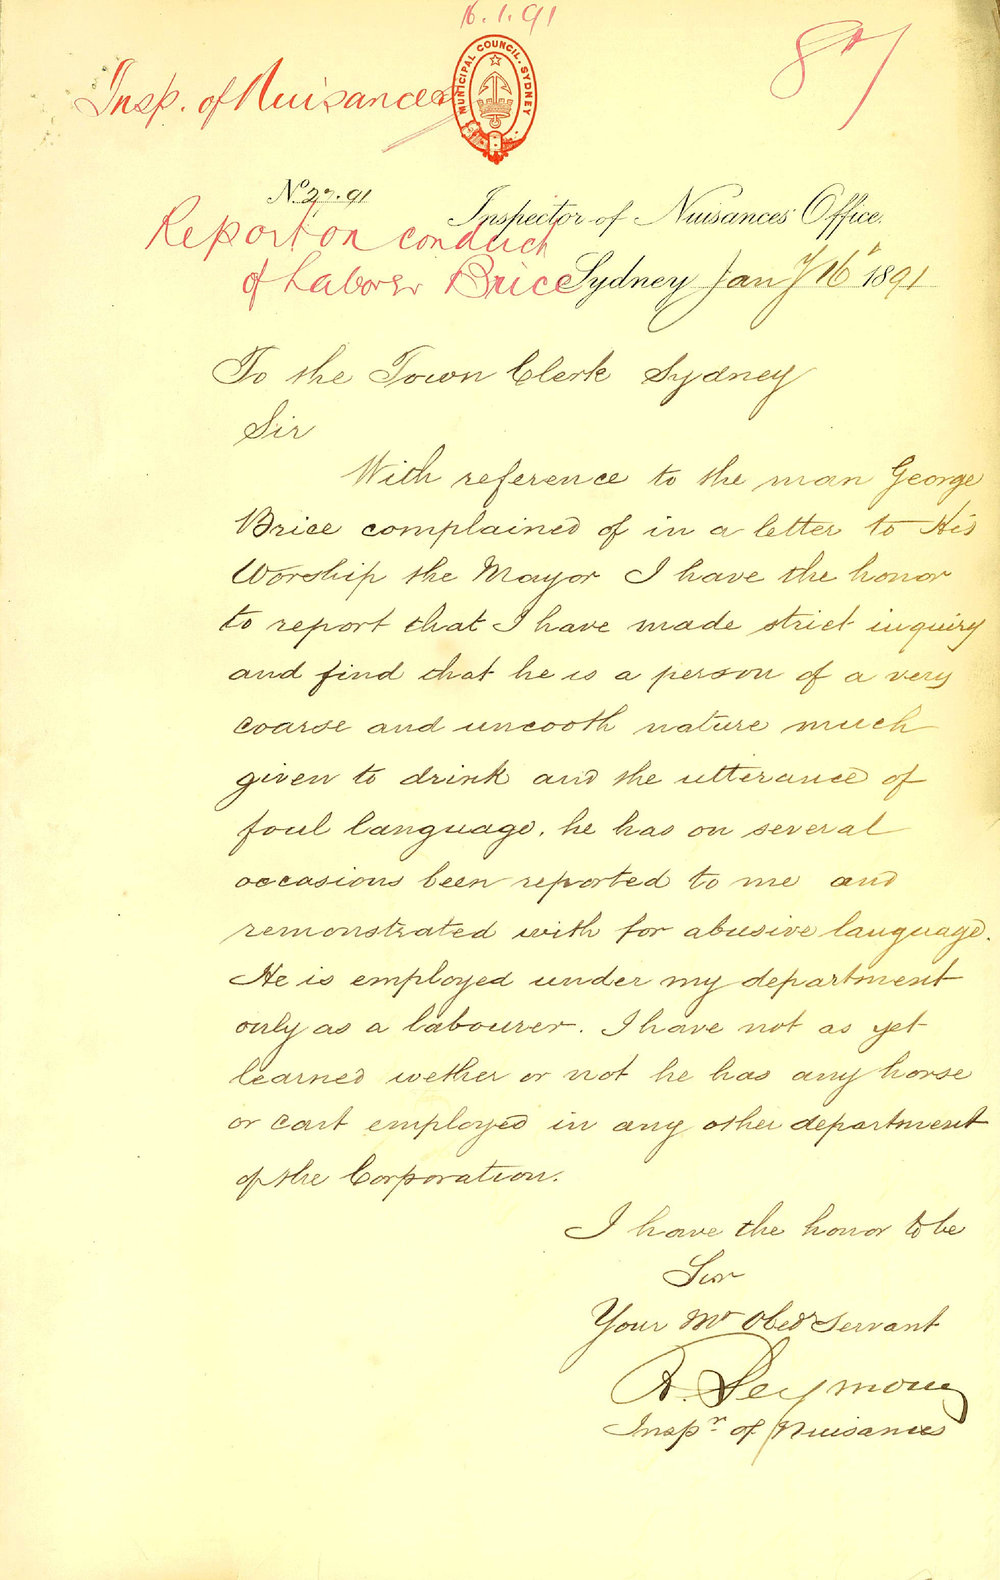 16.1.91
87
Insp. of Nuisances
MUNICIPAL COUNCIL. SYDNEY
No 27.91
Inspector of Nuisances' Office.
Report on conduct
of Laborer Brice
Sydney Jany 16th 1891
To the Town Clerk Sydney
Sir
With reference to the man George
Brice complained of in a letter to His
Worship the Mayor I have the honor
to report that I have made strict inquiry
and find that he is a person of a very
coarse and uncooth nature much
given to drink and the utterance of
foul language. he has on several
occasions been reported to me and
remonstrated with for abusive language.
He is employed under my department
only as a labourer. I have not as yet
learned wether or not he has any horse
or cart employed in any other department
of the Corporation.
I have the honor to be
Sir
Your Mt Obed Servant
R. Seymour
Inspr of Nuisances